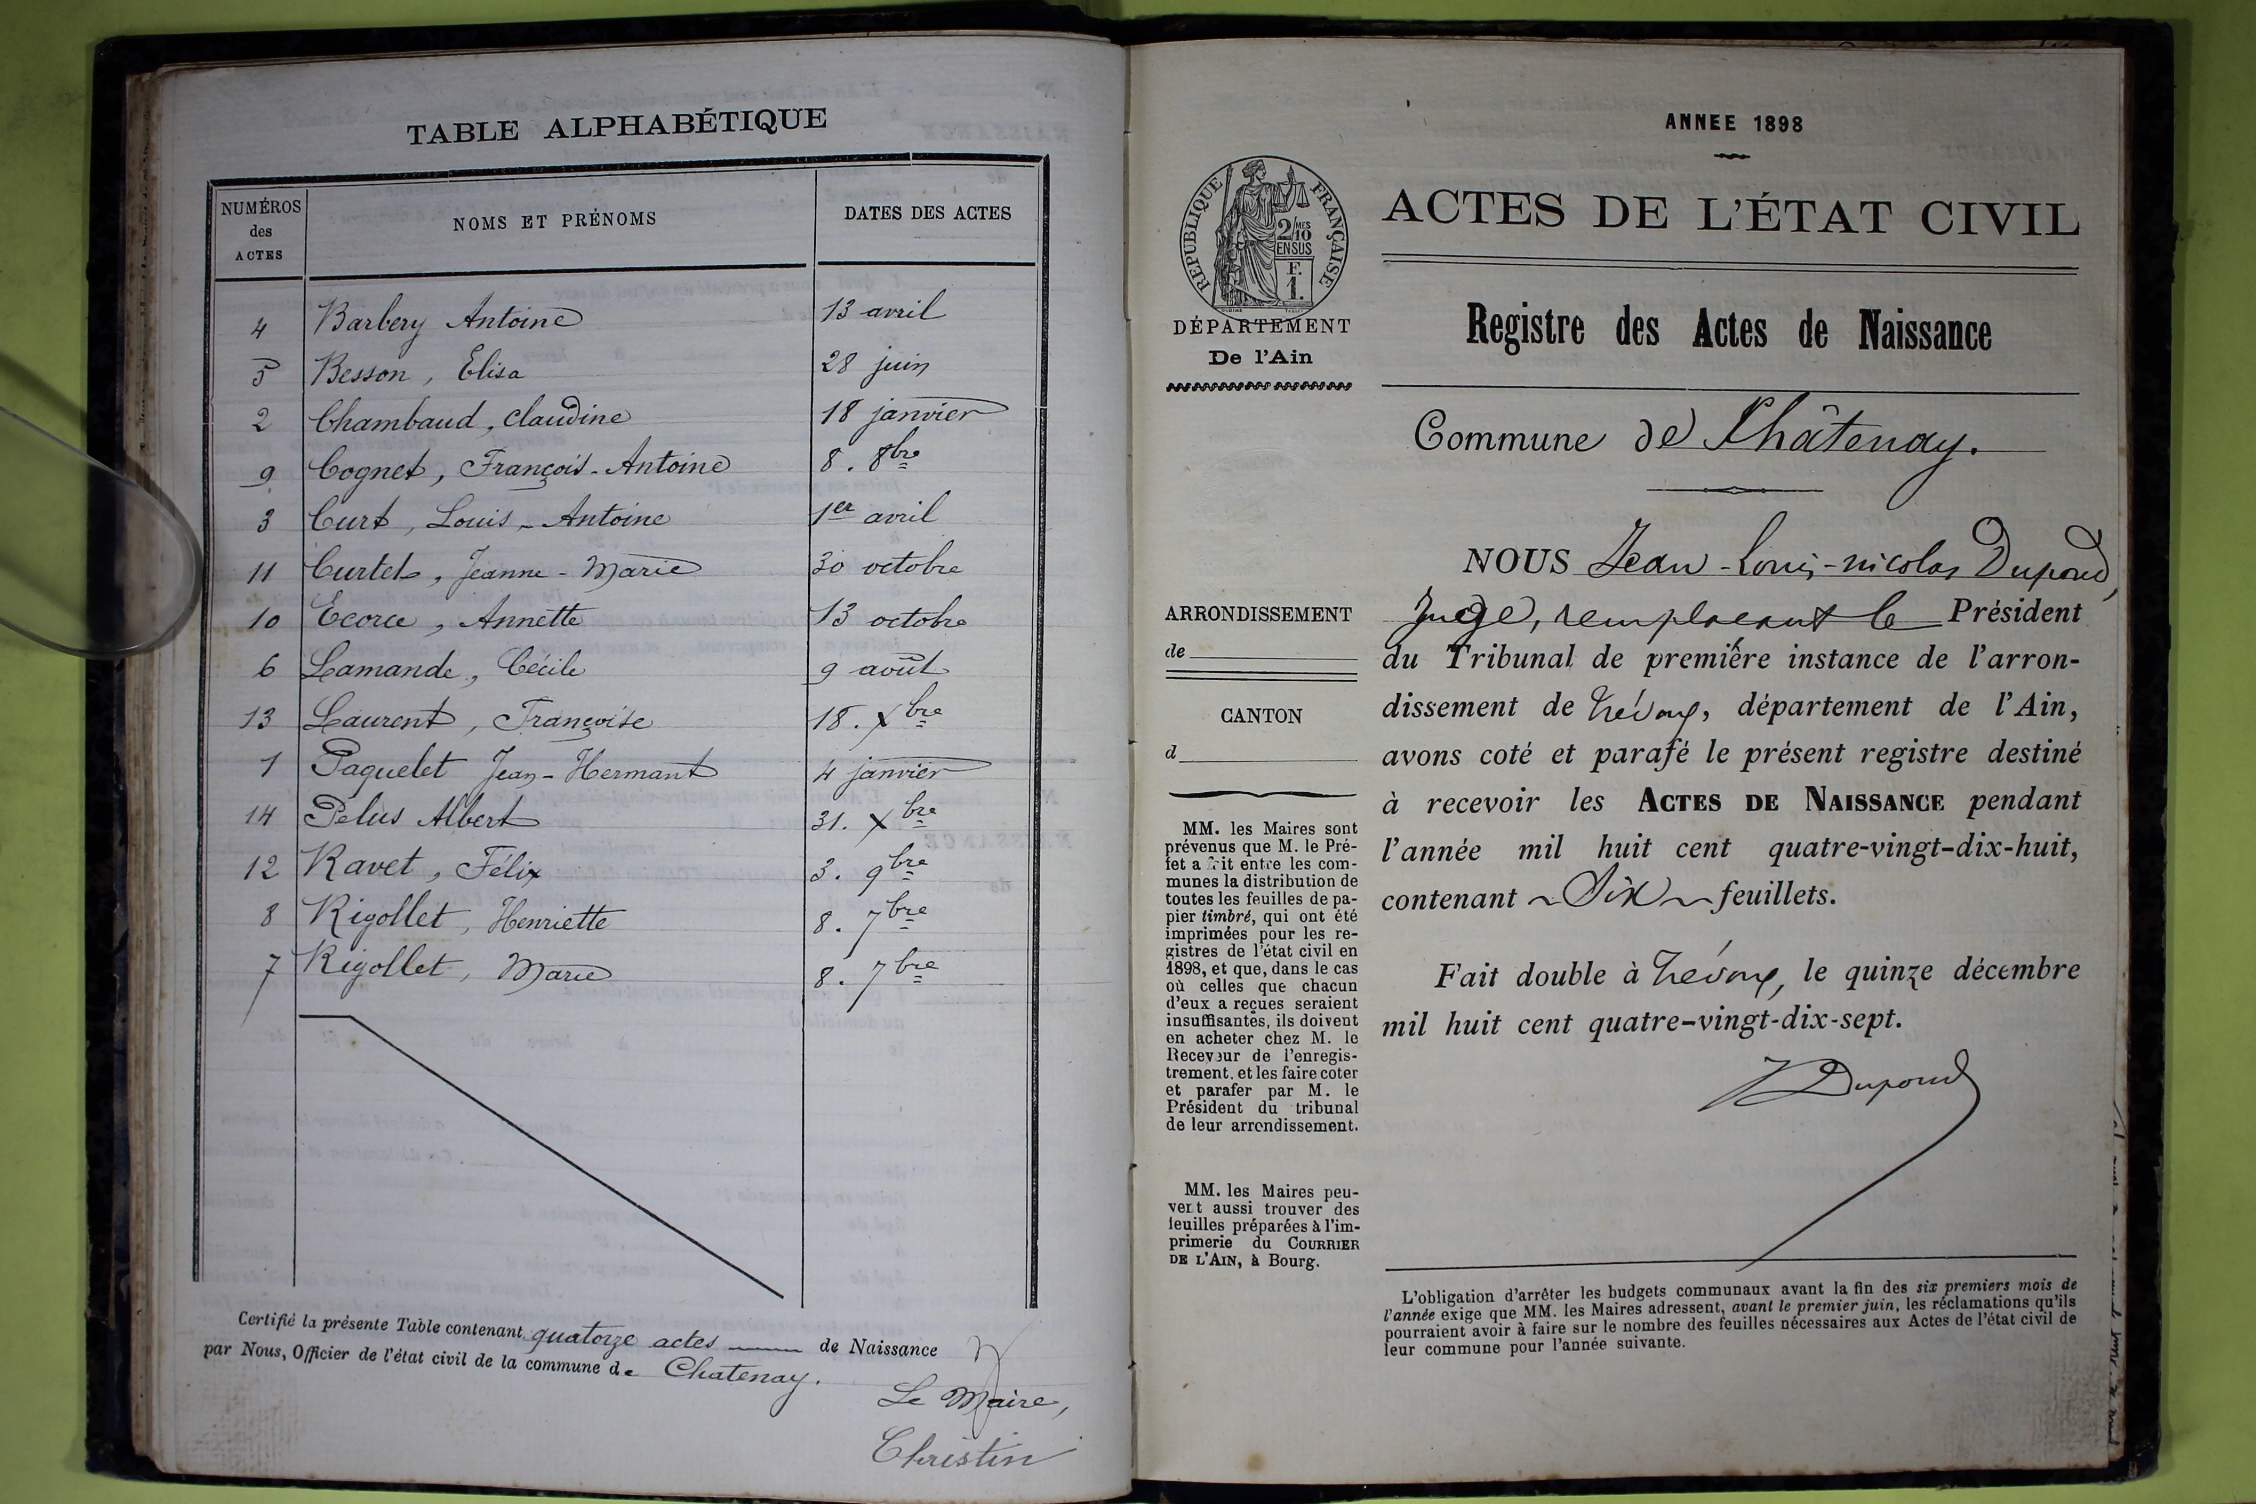 TABLE ALPHABÉTIQUE
NUMÉROS des ACTES NOMS ET PRÉNOMS DATES DES ACTES
4 Barbery Antoine 13 avril
5 Besson, Elisa 28 juin
2 Chambaud, Claudine 18 janvier
9 Cognet, François-Antoine 8. 8bre
3 Curt, Louis-Antoine 1er avril
11 Curtet, Jeanne-Marie 30 octobre
10 Ecorce, Annette 13 octobre
6 Lamande, Cécile 9 août
13 Laurent, Françoise 18. Xbre
1 Paquelet Jean-Hermant 4 janvier
14 Pélus Albert 31. Xbre
12 Ravet, Félix 3. 9bre
8 Rigollet, Henriette 8. 7bre
7 Rigollet, Marie 8. 7bre
Certifié la présente Table contenant quatorze actes de Naissance
par Nous, Officier de l'état civil de la commune de Chatenay.
Le Maire,
Christin
ANNEE 1898
RÉPUBLIQUE FRANÇAISE
2/10 MES
EN SUS
F.
1.
ACTES DE L'ÉTAT CIVIL
DÉPARTEMENT
De l'Ain
Registre des Actes de Naissance
Commune de Châtenay.
ARRONDISSEMENT
de
CANTON
d
MM. les Maires sont
prévenus que M. le Pré-
fet a fait entre les com-
munes la distribution de
toutes les feuilles de pa-
pier timbré, qui ont été
imprimées pour les re-
gistres de l'état civil en
1898, et que, dans le cas
où celles que chacun
d'eux a reçues seraient
insuffisantes, ils doivent
en acheter chez M. le
Receveur de l'enregis-
trement, et les faire coter
et parafer par M. le
Président du tribunal
de leur arrondissement.
MM. les Maires peu-
vent aussi trouver des
feuilles préparées à l'im-
primerie du COURRIER
DE L'AIN, à Bourg.
NOUS Jean-Louis-nicolas Dupond,
Juge, remplacant le Président
du Tribunal de première instance de l'arron-
dissement de Trévoux, département de l'Ain,
avons coté et parafé le présent registre destiné
à recevoir les ACTES DE NAISSANCE pendant
l'année mil huit cent quatre-vingt-dix-huit,
contenant ~ Six ~ feuillets.
Fait double à Trévoux, le quinze décembre
mil huit cent quatre-vingt-dix-sept.
Dupond
L'obligation d'arrêter les budgets communaux avant la fin des six premiers mois de
l'année exige que MM. les Maires adressent, avant le premier juin, les réclamations qu'ils
pourraient avoir à faire sur le nombre des feuilles nécessaires aux Actes de l'état civil de
leur commune pour l'année suivante.